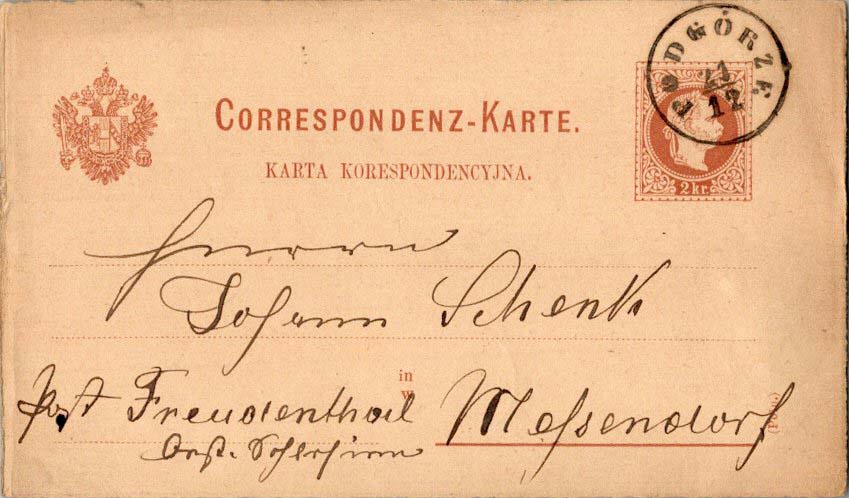 PODGÓRZE
21/12
CORRESPONDENZ-KARTE.
KARTA KORESPONDENCYJNA.
2 kr.
Herrn
Johann Schenk
in
w
Post Freudenthal Messendorf
Oest. Schlesien
(Pol.)